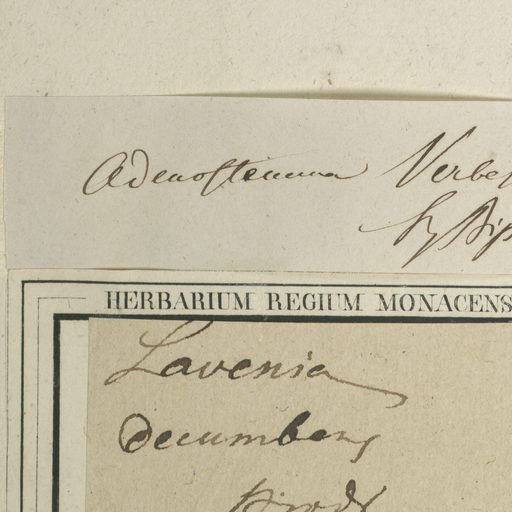 Adenostemma Verbe
HERBARIUM REGIUM MONACENS
Lavenia
decumbens